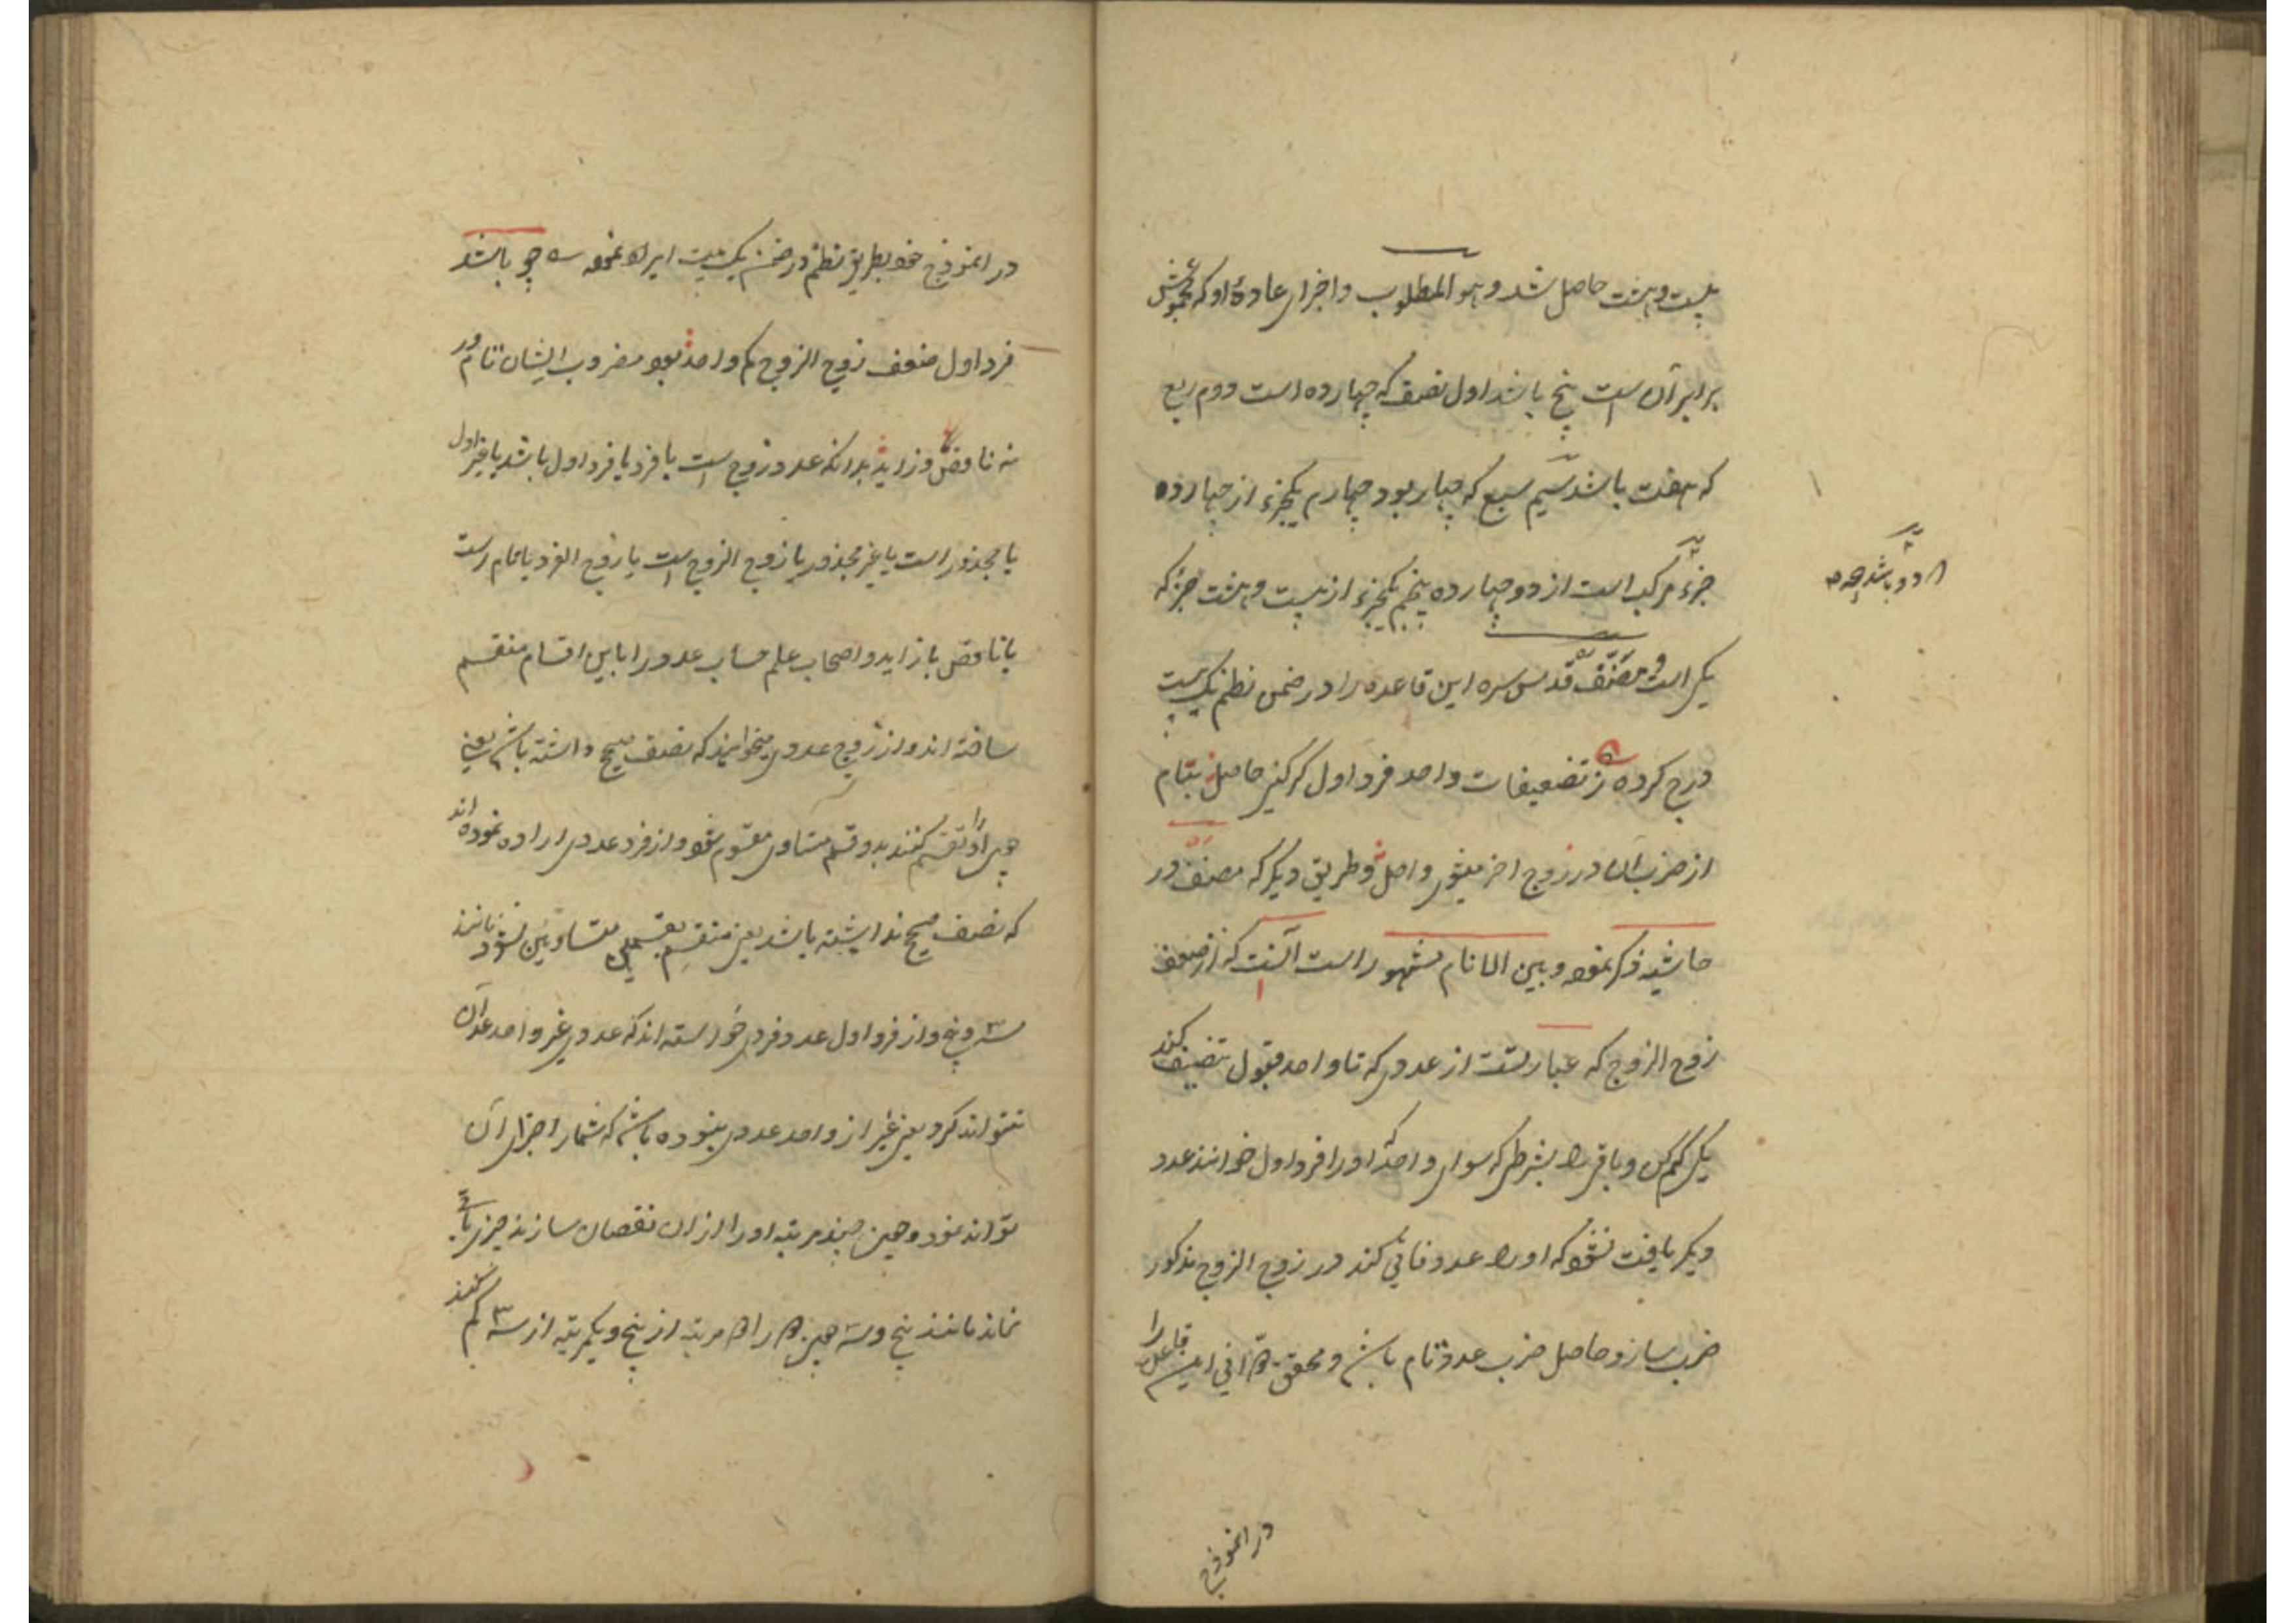 بیست و هشت حاصل شد و هو المطلوب و اجزای عادهٔ او که مجموعش
برابر آن است پنج باشد اول نصف که چهارده است دوم ربع
که هفت باشد سیم سبع که چهار بود چهارم یکجزء از چهارده
جزء مرکب است از دو چهارده پنجم یکجزء از بیست و هشت جزء که
یکی است و مصنف قدس سره این قاعده را در ضمن نظم یک بیت
درج کرده ز تضعیفات واحد فرد اول گر کنی حاصل بتام
از ضرب آن در زوج اخر میشوی واصل و طریق دیگر که مصنف در
حاشیه ذکر نموده و بین الانام مشهور است آنست که از ضعف
زوج الزوج که عبارتست از عددی که تا واحد قبول تنصیف کند
یکی کم کن و باقی را بشرطی که سوای واحد که او را فرد اول خوانند عدد
دیگر یافت نشود که او را عدد فانی کند در زوج الزوج مذکور
ضرب ساز و حاصل ضرب عدد تام باشد و محقق دوانی این قاعده را
در انموذج
در انموذج خود بطریق نظم در ضمن یک بیت ایراد نموده چو باشد
فرد اول ضعف زوج الزوج کم واحد بود مضروب ایشان تام ور
نه ناقص و زاید بدانکه عدد زوج است یا فرد یا فرد اول باشد یا غیر اول
یا مجذور است یا غیر مجذور یا زوج الزوج است یا زوج الفرد یا تمام است
یا ناقص یا زاید و اصحاب علم حساب عدد را باین اقسام منقسم
ساخته اند و از زوج عددی میخواهند که نصف صحیح داشته باشد یعنی
چون او را تقسیم کنند بدو قسم متساوی مقسوم شود و از فرد عددی اراده نموده اند
که نصف صحیح نداشته باشد یعنی منقسم بقسمین متساویین نشود مانند
سه و پنج و از فرد اول عدد فردی خواسته اند که عددی غیر واحد عد آن
نتواند کرد یعنی غیر از واحد عددی نبوده باشد که شمار اجزای آن
تواند نمود و چون چند مرتبه او را از ان نقصان سازند چیزی باقی
نماند مانند پنج و سه چون دو را دو مرتبه از پنج و یکمرتبه از سه کم کنند